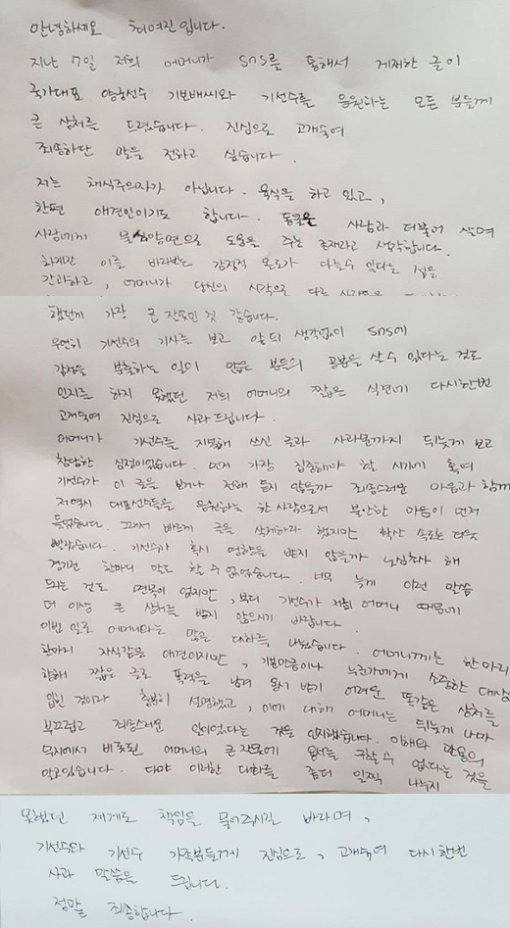 안녕하세요 최여진 입니다.
지난 7일 저희 어머니가 SNS를 통해서 게재한 글이
국가대표 양궁선수 기보배씨와 기선수를 응원하는 모든 분들께
큰 상처를 드렸습니다. 진심으로 고개숙여
죄송하단 말을 전하고 싶습니다.
저는 채식주의자가 아닙니다. 육식을 하고 있고,
한편 애견인이기도 합니다. 동물은 사람과 더불어 살며
사람에게 물心양면으로 도움을 주는 존재라고 생각합니다.
하지만 이를 바라보는 감정적 온도가 다를수 있다는 점을
간과하고, 어머니가 당신의 시각으로 다른 시각을
했던게 가장 큰 잘못인것 같습니다.
우연히 기선수의 기사를 보고 앞뒤 생각없이 SNS에
감정을 분출하는 일이 많은 분들의 공분을 살수 있다는 것도
인지를 하지 못했던 저희 어머니의 짧은 식견에 다시한번
고개숙여 진심으로 사과 드립니다.
어머니가 기선수를 지목해 쓰신 글과 사과문까지 뒤늦게 보고
참담한 심정이었습니다. 먼저 가장 집중해야 할 시기에 혹여
기선수가 이 글을 보거나 전해 듣지 않을까 죄송스러운 마음과 함께
저역시 대표선수들을 응원하는 한사람으로서 불안한 마음이 먼저
들었습니다. 그래서 빠르게 글을 삭제하라 했지만 확산 속도는 더욱
빨랐습니다. 기선수가 혹시 영향을 받지 않을까 노심초사 해
경기전 한마디 말도 할 수 없었습니다. 너무 늦게 이런 말씀
드리는 것도 면목이 없지만, 부디 기선수가 저희 어머니 때문에
더 이상 큰 상처를 받지 않으시기 바랍니다.
이번 일로 어머니와는 많은 대화를 나눴습니다. 어머니께는 한마리
한마리 자식같은 애견이지만, 기보배양이나 누군가에게 소중한 대상
향해 짧은 글로 폭력을 남겨 용서 받기 어려운 똑같은 상처를
입힌 것이라 충분히 설명했고, 이에 대해 어머니는 뒤늦게 나마
부끄럽고 죄송스러운 일이었다는 것을 인지했습니다. 이해와 관용의
무지에서 비롯된 어머니의 큰 잘못에 용서를 구할 수 없다는 것을
알고있습니다. 다만 이러한 대화를 좀더 일찍 나누지
못했던 제게도 책임을 물어주시길 바라며,
기선수와 기선수 가족분들께 진심으로, 고개숙여 다시한번
사과 말씀을 드립니다.
정말 죄송합니다.